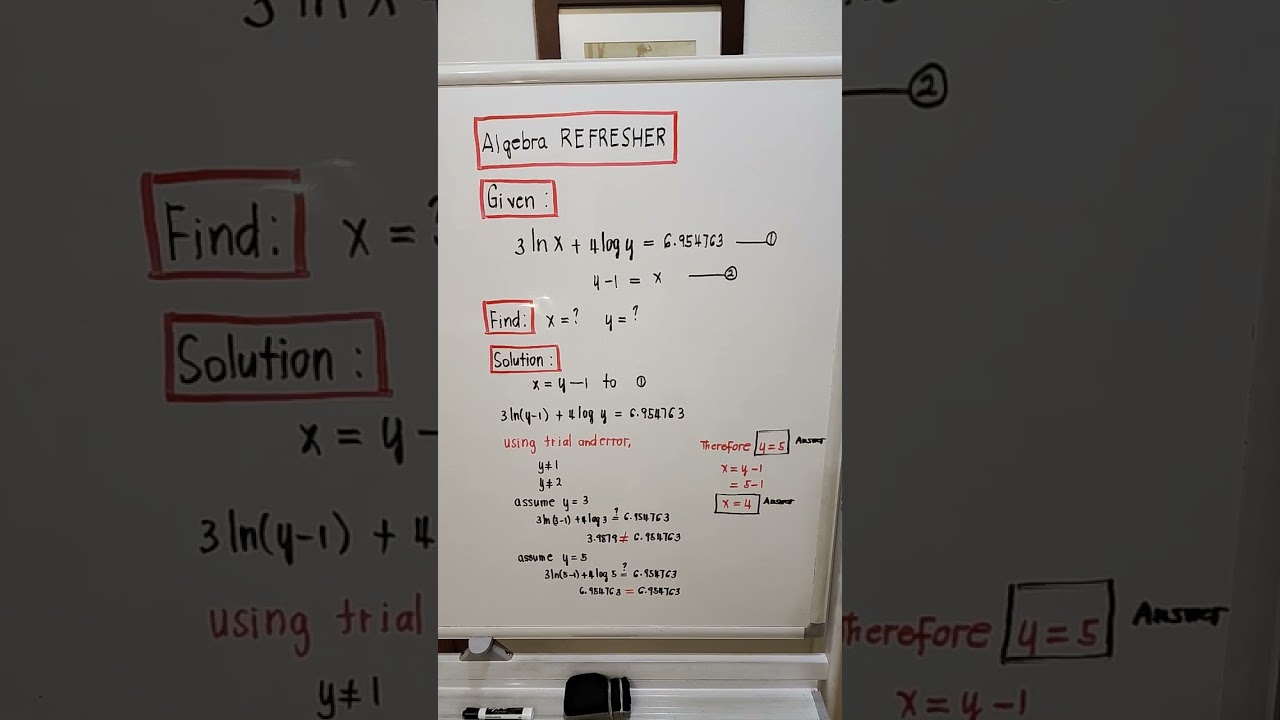 Algebra REFRESHER
Given :
3 ln x + 4 log y = 6.954763 — ①
y - 1 = x — ②
Find: x = ? y = ?
Solution :
x = y - 1 to ①
3 ln(y-1) + 4 log y = 6.954763
using trial and error,
y ≠ 1
y ≠ 2
assume y = 3
3 ln(3-1) + 4 log 3 ≟ 6.954763
3.9879 ≠ 6.954763
assume y = 5
3 ln(5-1) + 4 log 5 ≟ 6.954763
6.954763 = 6.954763
Therefore y = 5 Answer
x = y - 1
= 5 - 1
x = 4 Answer
3 ln x
②
Find: x =
Solution :
x = y -
3 ln(y-1) + 4
using trial
y ≠ 1
Therefore y = 5 Answer
x = y - 1